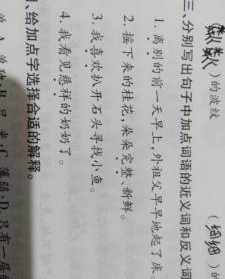 （紫紫）的波纹 （细细）的
三、分别写出句子中加点词语的近义词和反义词
1. 离别的前一天早上，外祖父早早地起了床
2. 摇下来的桂花，朵朵完整、新鲜。
3. 我喜欢扒开石头寻找小鱼。
4. 我看见慈祥的奶奶了。
、给加点字选择合适的解释。